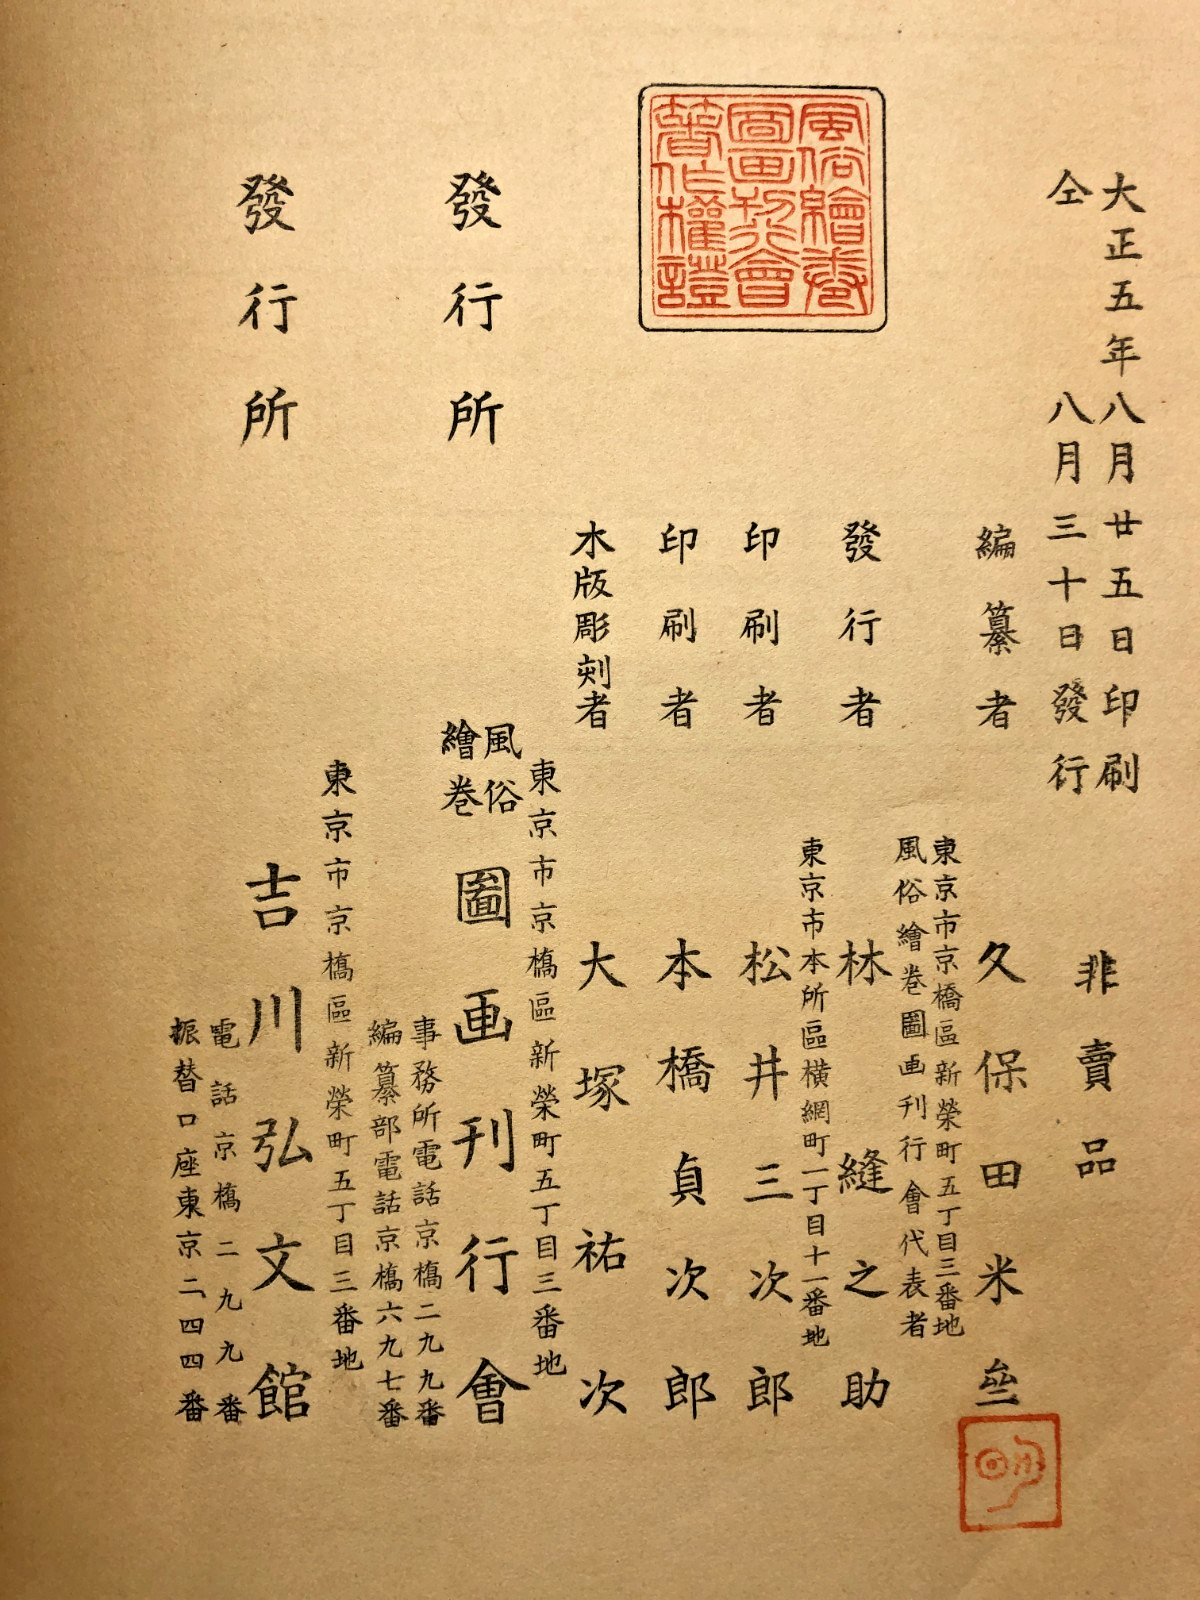 大正五年八月廿五日印刷
仝八月三十日發行
非賣品
編纂者 久保田米斎
東京市京橋區新榮町五丁目三番地
風俗繪卷圖画刊行會代表者
發行者 林縫之助
東京市本所區横網町一丁目十一番地
印刷者 松井三次郎
印刷者 本橋貞次郎
木版彫刻者 大塚祐次
風俗繪卷圖画刊行會著作權證
東京市京橋區新榮町五丁目三番地
發行所 風俗繪卷圖画刊行會
事務所電話京橋二九九番
編纂部電話京橋六九七番
東京市京橋區新榮町五丁目三番地
發行所 吉川弘文館
電話京橋二九九番
振替口座東京二四四番